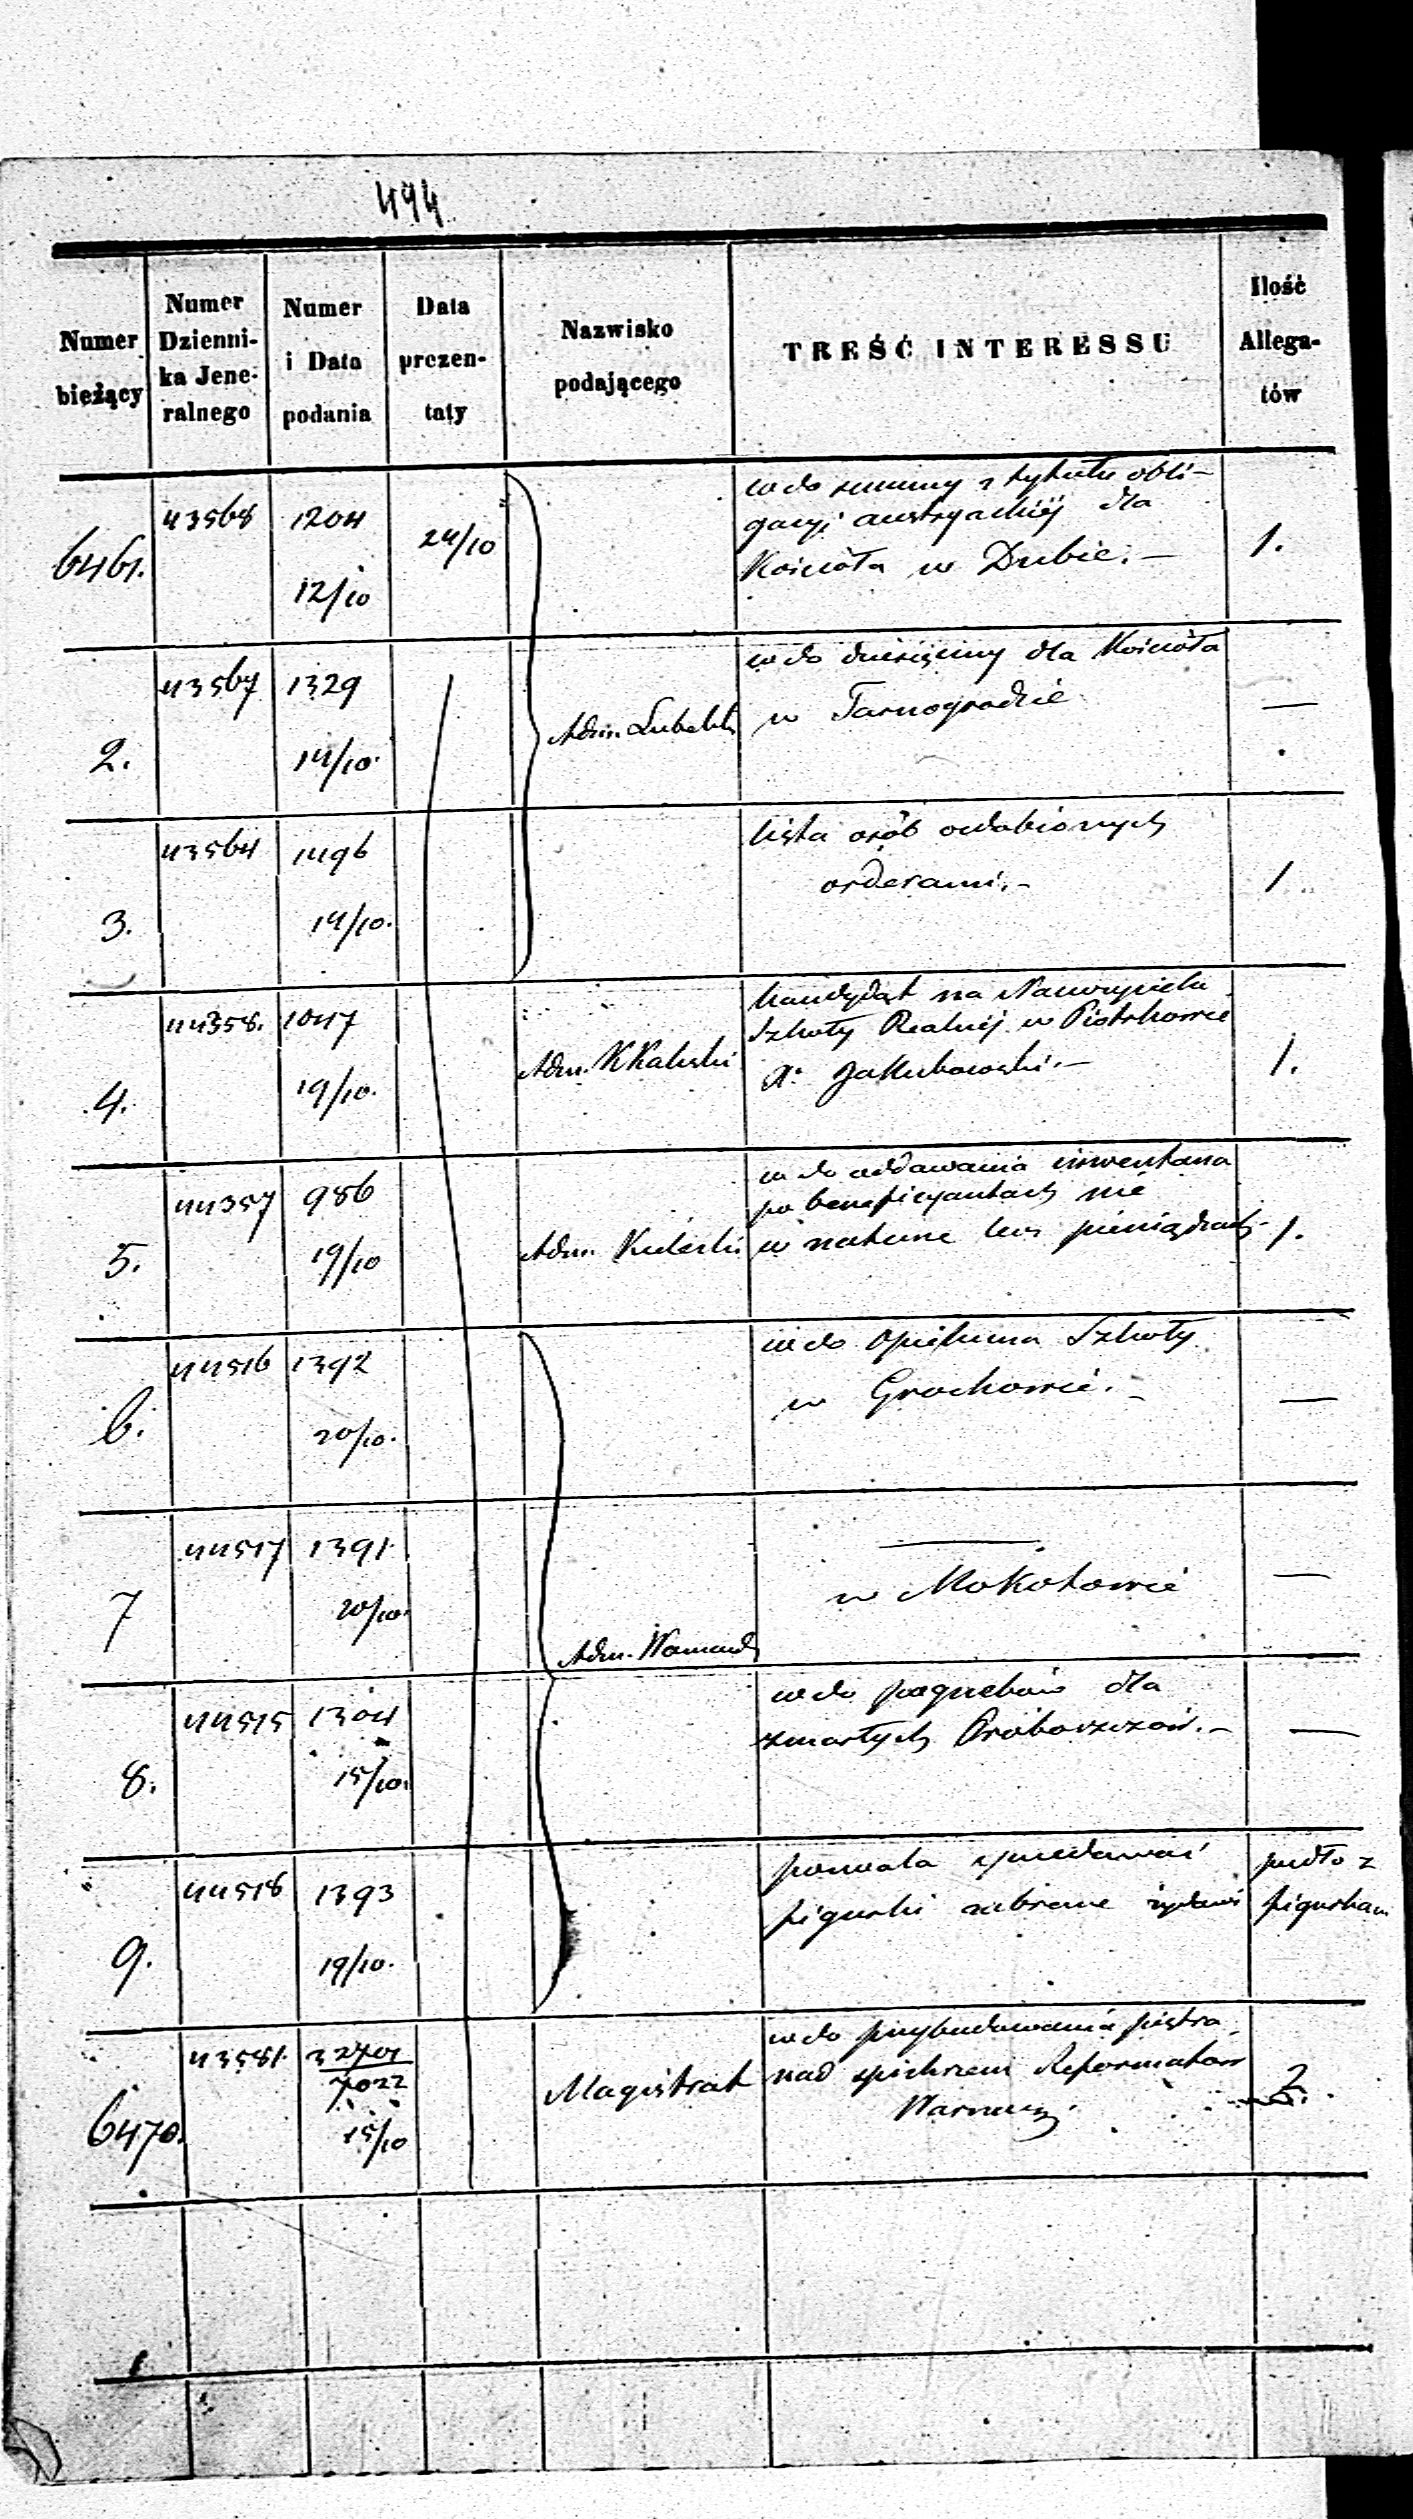 494
Numer bieżący
Numer Dzienni-ka Jene-ralnego
Numer i Data podania
Data prezen-taty
Nazwisko podającego
TREŚĆ INTERESSU
Ilość Allega-tów
6461. 43568 1204 12/10 24/10
w do summy z tytułu obli-
gacyi austryackiéj dla
Kościoła w Dubie. — 1.
2. 43567 1329 14/10. Adm. Lubelsk
w do dziesięciny dla Kościoła
w Tarnogrodzie —
3. 43564 1496 14/10.
lista osób ozdobionych
orderami. – 1
4. 44358. 1047 19/10. Adm. KKaliski
kandydat na Nauczyciela
Szkoły Realnéj w Piotrkowie
X. Jakubowski. – 1.
5. 44357 986 19/10 Adm. Kielecki
w do oddawania inwentarza
po beneficyantach nie
w naturze lecz pieniądzach – 1.
6. 44516 1392 20/10.
w do Opiekuna Szkoły
w Grochowie. – —
7 44517 1391 20/10. Adm. Warszawsk
——
w Mokotowie —
8. 44515 1304 15/10.
w do pogrzebów dla
zmarłych Proboszczów. – —
9. 44518 1393 19/10.
pozwala sprzedawać
figurki zabrane żydowi
pudło z
figurkami
6470. 43581. 32701/7022 15/10 Magistrat
w do przybudowania piętra
nad spichrzem Reformatów
Warszaw. 2.